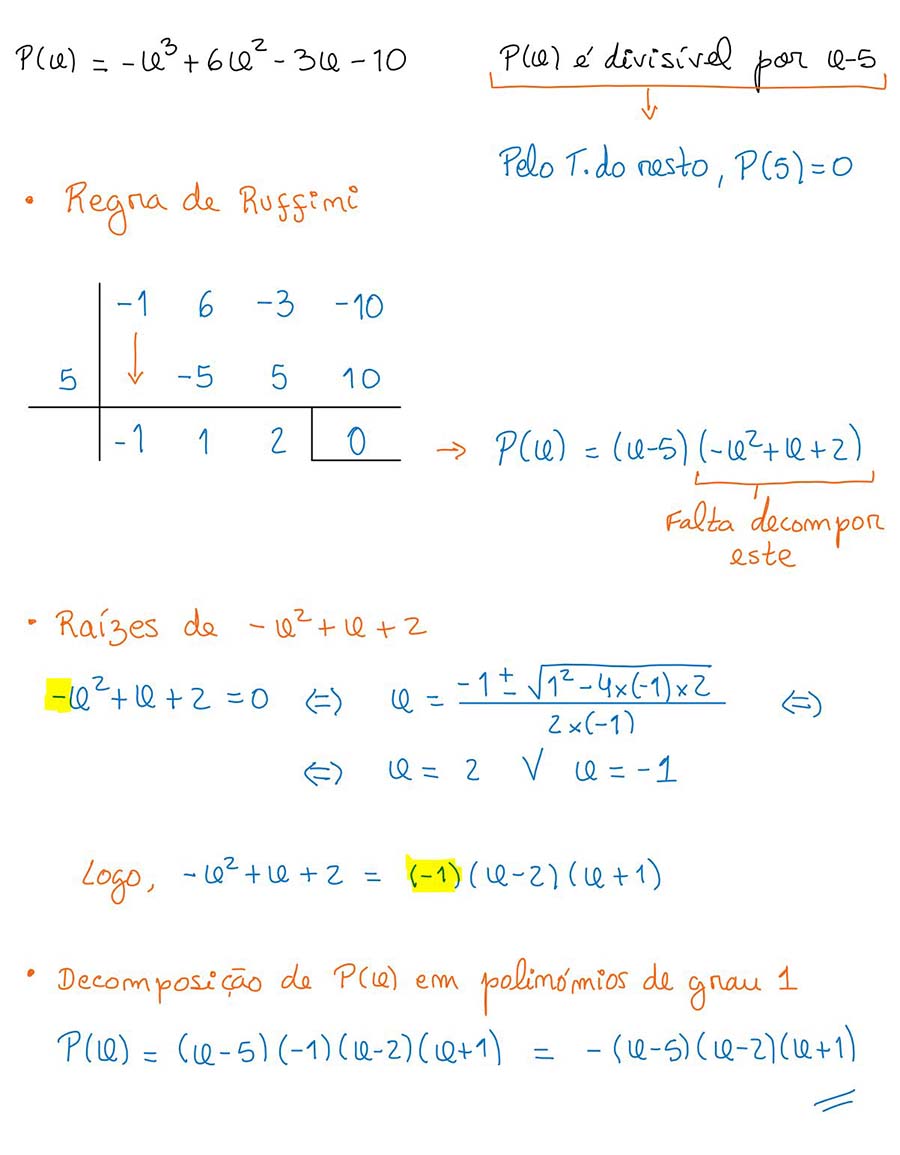 P(x) = -x³ + 6x² - 3x - 10
P(x) é divisível por x-5
Pelo T. do resto, P(5) = 0
• Regra de Ruffini
-1 6 -3 -10
5 ↓ -5 5 10
-1 1 2 0
→ P(x) = (x-5)(-x²+x+2)
Falta decompor
este
• Raízes de -x² + x + 2
-x² + x + 2 = 0 ⇔ x = (-1 ± √(1² - 4×(-1)×2)) / (2×(-1)) ⇔
⇔ x = 2 ∨ x = -1
Logo, -x² + x + 2 = (-1)(x-2)(x+1)
• Decomposição de P(x) em polinómios de grau 1
P(x) = (x-5)(-1)(x-2)(x+1) = -(x-5)(x-2)(x+1)